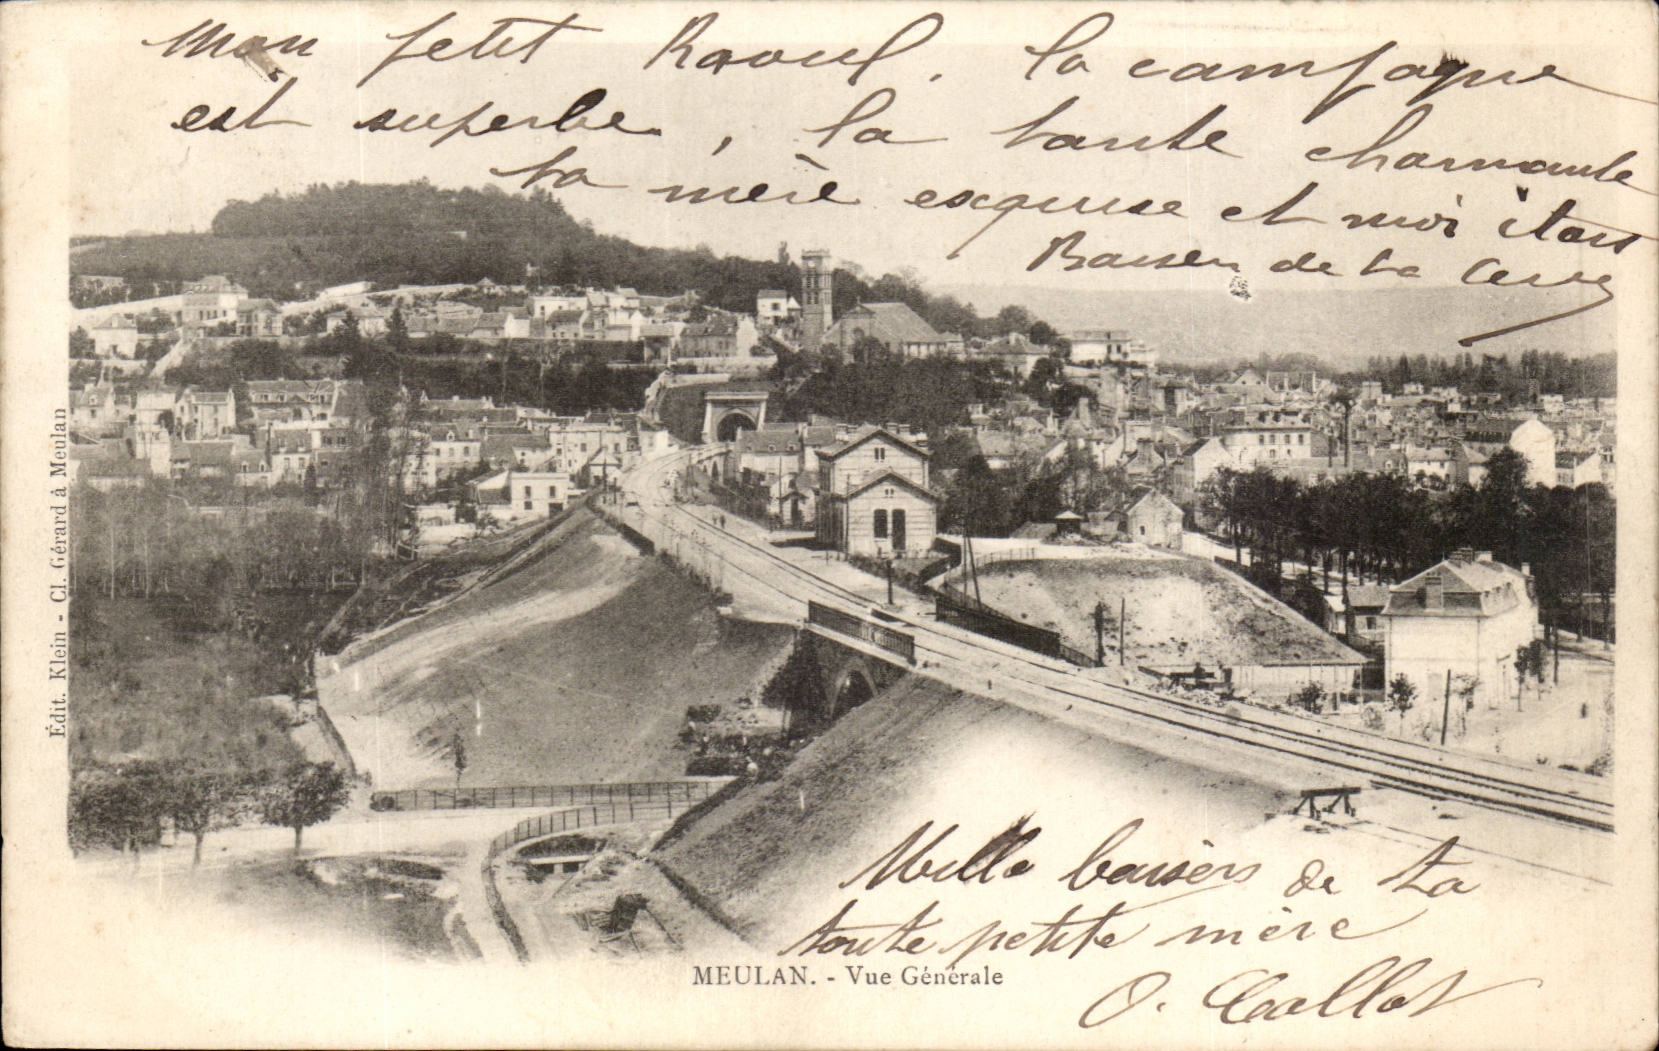 Mon petit Raoul, la campagne
est superbe, la tante charmante
ta mère exquise et moi
de ta
Mille baisers de ta
toute petite mère
O. Callot
MEULAN. - Vue Générale
Édit. Klein - Cl. Gérard à Meulan